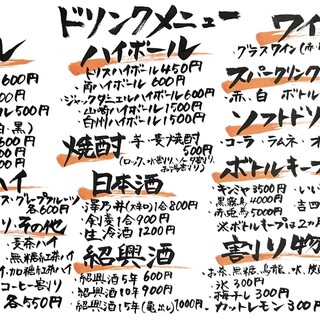 ドリンクメニュー
ル
600円
00円
ル500円
(白・黒)
00円
00円
00円
ハイ
ス・グレープフルーツ
各600円
り・その他
・麦茶ハイ
紅茶ハイ
加糖紅茶ハイ
・コーヒー割り
各550円
ハイボール
・トリスハイボール450円
・角ハイボール600円
・ジャックダニエルハイボール600円
・山崎ハイボール1500円
・白州ハイボール1500円
焼酎 芋・麦焼酎
500円
(ロック、水割り、ソーダ割り、お湯割り)
日本酒
・澤乃井(大辛口)合800円
・剣菱1合900円
・生冷酒1200円
紹興酒
・紹興酒5年600円
・紹興酒10年900円
・紹興酒15年(亀出し)1000円
ワイ
グラスワイン(赤・
スパークリング
・赤、白 ボトル
ソフトドリ
・コーラ・ラムネ・オ
ボトルキープ
・キンミヤ3500円・いい
・黒霧島4000円・吉四
・赤兎馬5000円
※ボトルキープは2ヵ月
割り物
・お茶、黒糖、烏龍、水、炭
・氷300円
・梅干し300円
・カットレモン300円